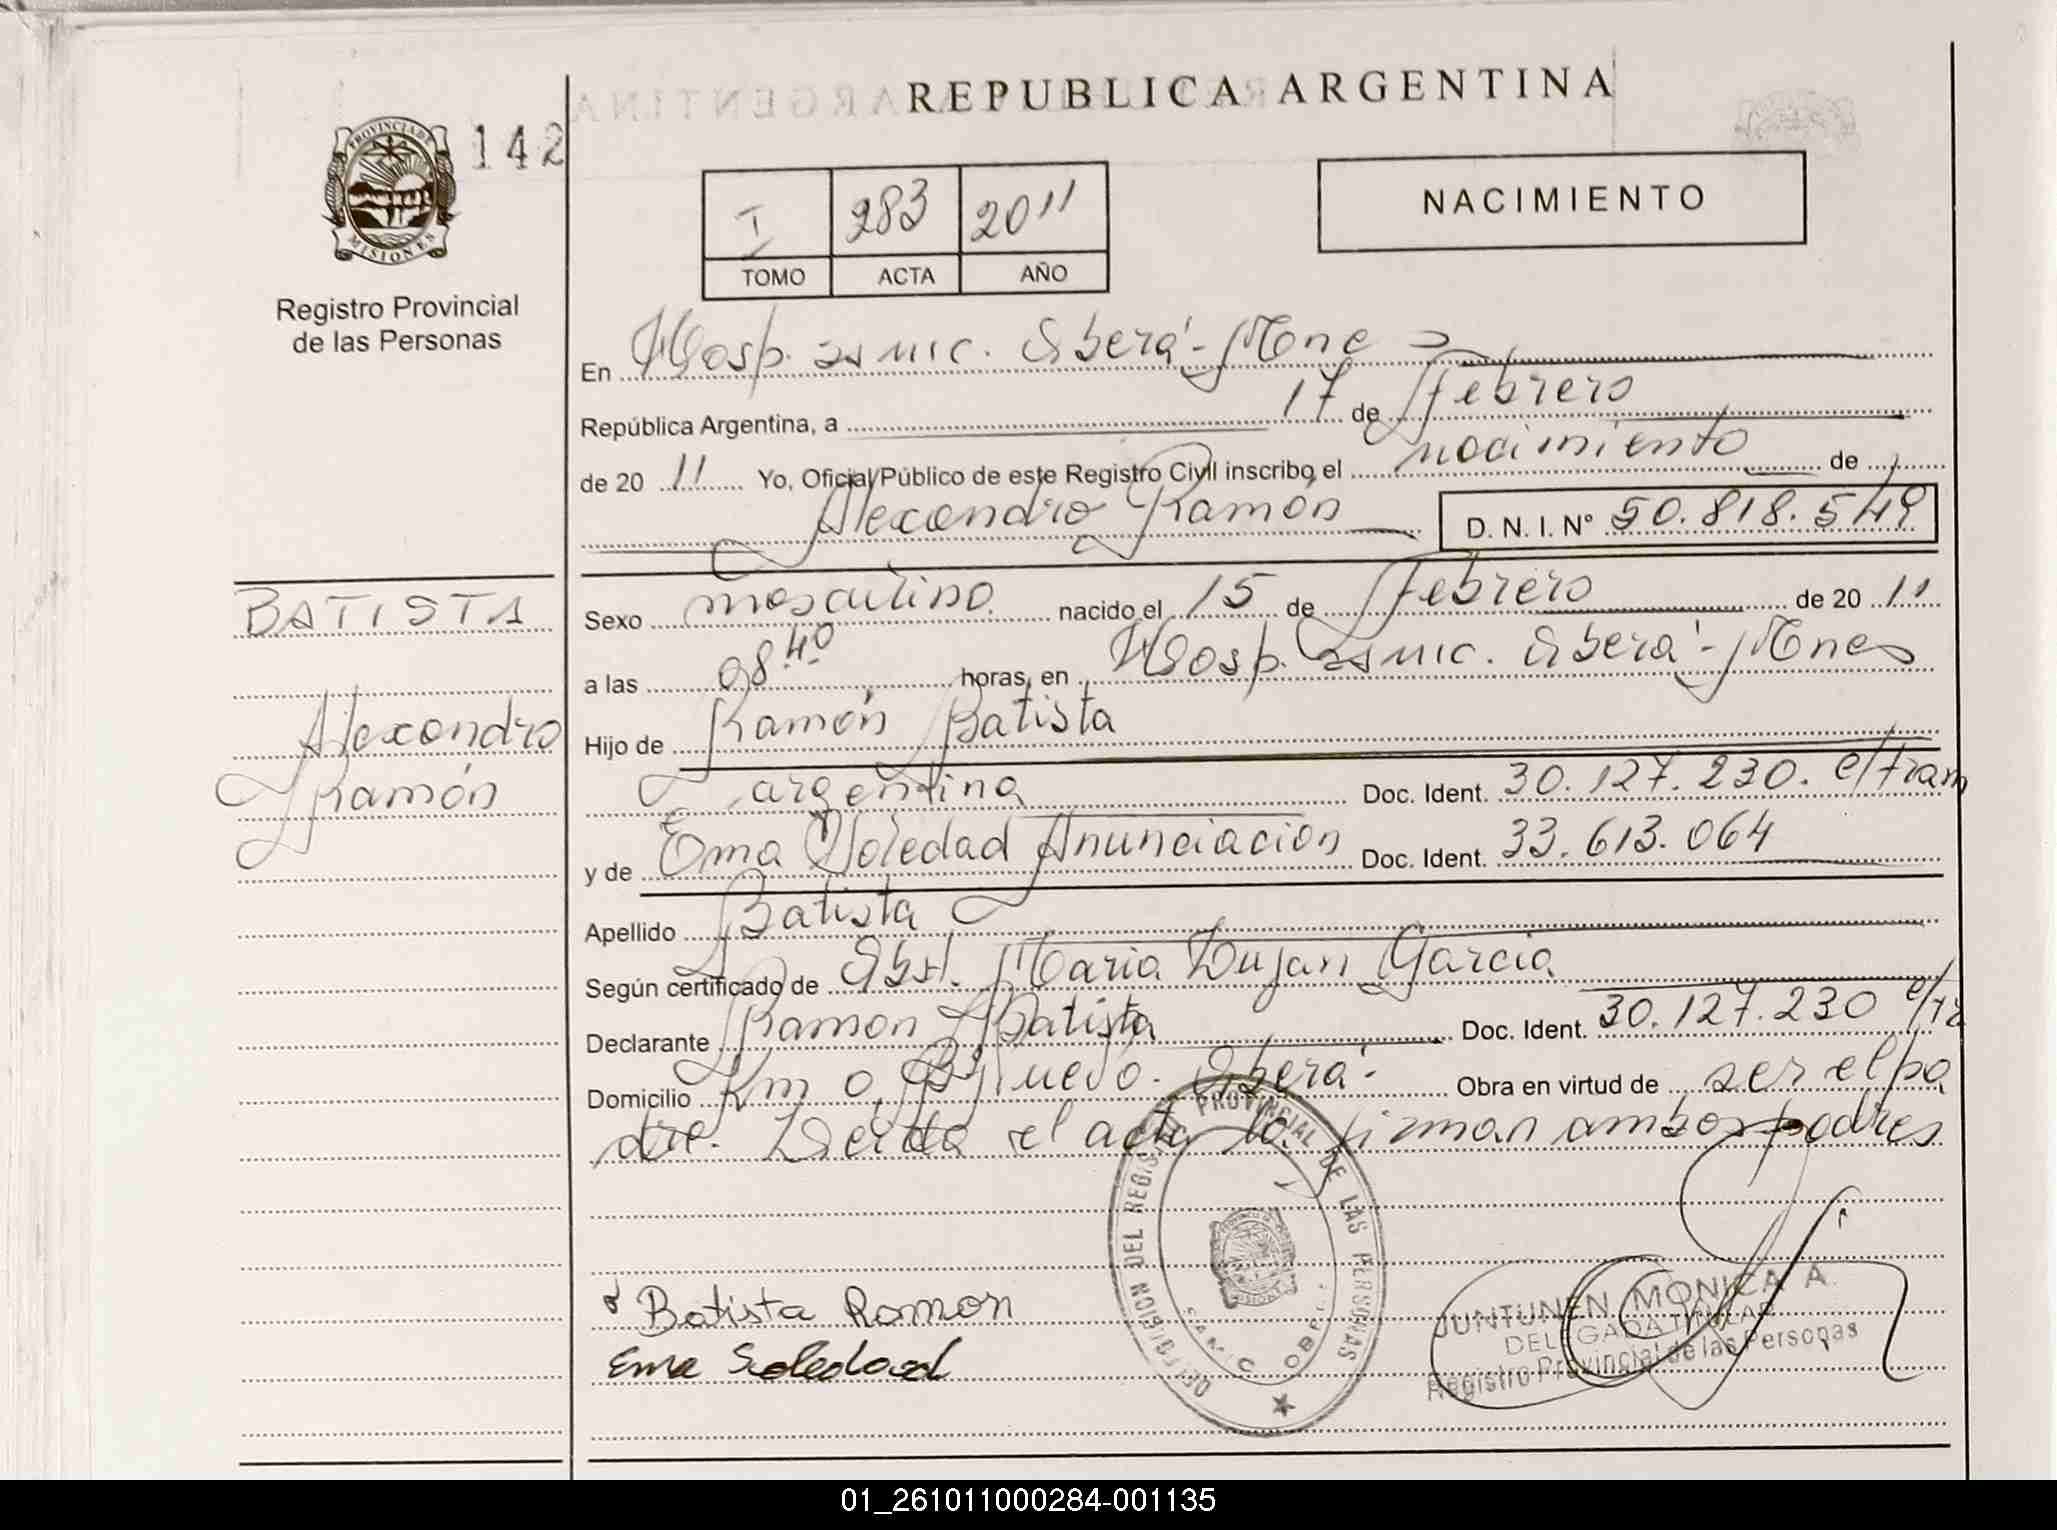 REPUBLICA ARGENTINA
142
PROVINCIA DE
MISIONES
Registro Provincial
de las Personas
I 283 2011
TOMO ACTA AÑO
NACIMIENTO
En Hosp. SAMIC. Oberá - Mnes
República Argentina, a 17 de Febrero
de 20 11 Yo, Oficial Público de este Registro Civil inscribo el nacimiento de
Alexandro Ramón D. N. I. N° 50.818.549
BATISTA
Alexandro
Ramón
Sexo masculino nacido el 15 de Febrero de 20 11
a las 08.40 horas, en Hosp. SAMIC. Oberá - Mnes
Hijo de Ramón Batista
argentina Doc. Ident. 30.127.230. e/tram
y de Ema Soledad Anunciación Doc. Ident. 33.613.064
Apellido Batista
Según certificado de Obst. Maria Lujan Garcia
Declarante Ramon Batista Doc. Ident. 30.127.230 e/tr
Domicilio Km 0, Oberá - Obra en virtud de ser el pa
dre. Leida el acta la firman ambos padres
PROVINCIAL DE LAS PERSONAS
SAMIC OBERA
Batista Ramon
Ema Soledad
JUNTUNEN MONICA A.
DELEGADA TITULAR
Registro Provincial de las Personas
01_261011000284-001135